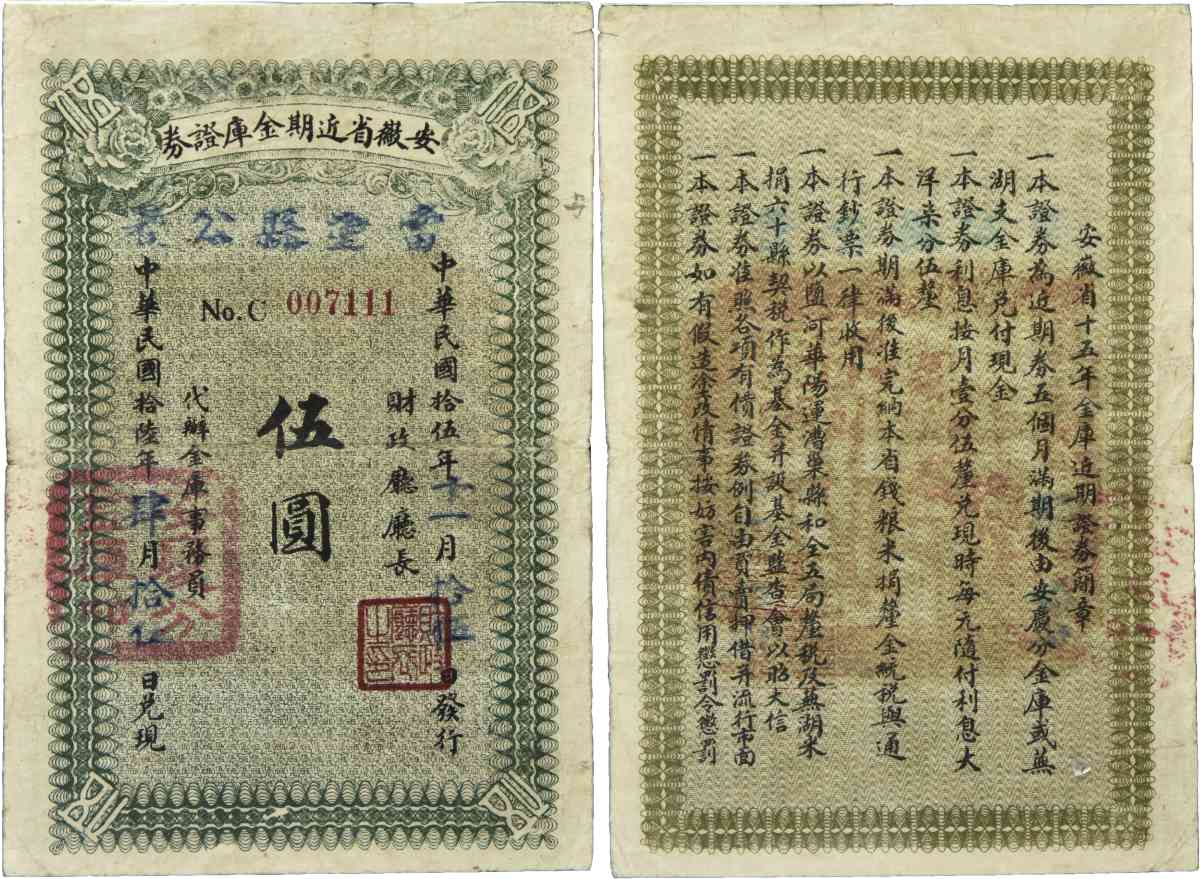 安徽省近期金庫證券
當塗縣公署
No. C 007111
中華民國拾伍年十一月拾伍日發行
財政廳廳長
伍圓
代辦金庫事務員
中華民國拾陸年肆月拾伍日兌現
財政廳廳長之印
安徽省十五年金庫近期證券簡章
一本證券為近期券五個月滿期後由安慶分金庫或蕪
湖支金庫兌付現金
一本證券利息按月壹分伍釐兌現時每元隨付利息大
洋柒分伍釐
一本證券期滿後准完納本省錢粮米捐釐金統稅與通
行鈔票一律收用
一本證券以鹽河華陽運漕巢縣和全五局釐稅及蕪湖米
捐六十縣契稅作為基金并設基金監查會以昭大信
一本證券准照各項有價證券例自由買賣押借并流行市面
一本證券如有假造塗改情事按妨害內債信用懲罰令懲罰